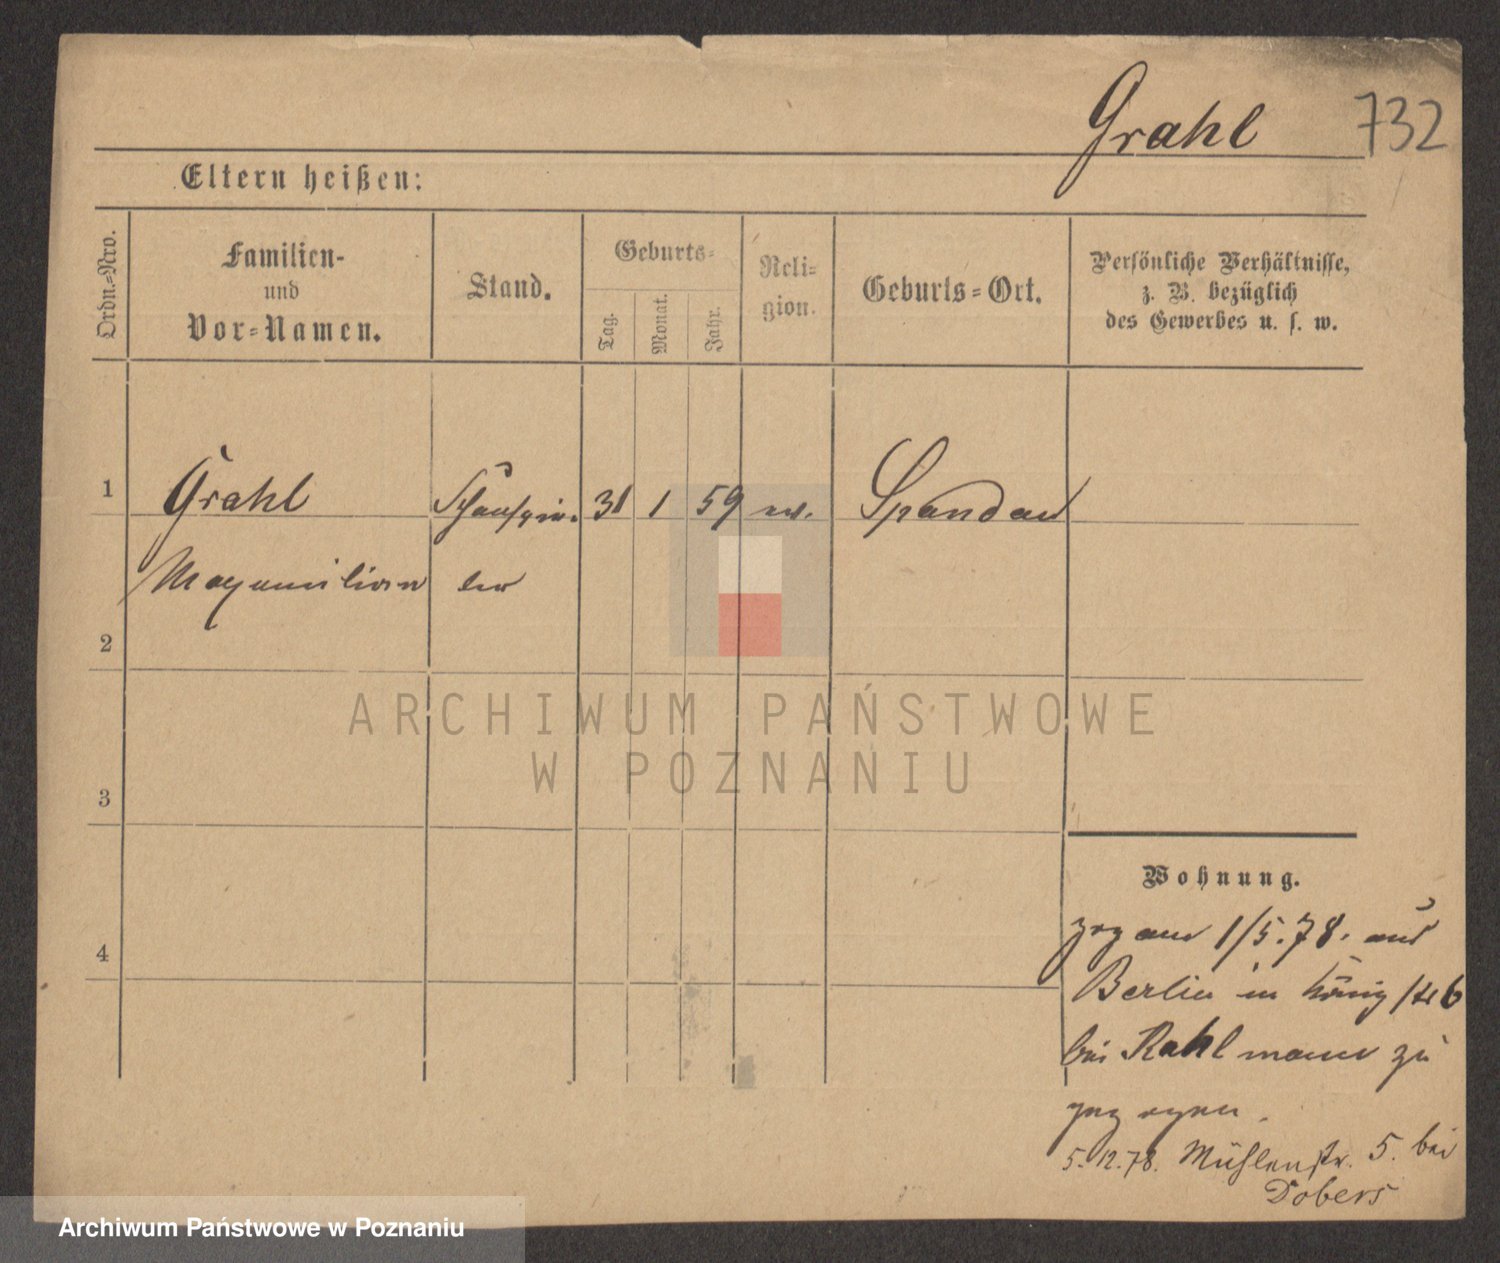 Grahl 732
Eltern heißen:
Ordn.-Nro.
Familien-
und
Vor-Namen.
Stand.
Geburts-
Tag.
Monat.
Jahr.
Reli-
gion.
Geburts-Ort.
Persönliche Verhältnisse,
z. B. bezüglich
des Gewerbes u. s. w.
1 Grahl 31 1 59 ev. Spandau
Maximilian
2
3
4
ARCHIWUM PAŃSTWOWE
W POZNANIU
Wohnung.
zog am 1/5.78. aus
Berlin in König
bei Kahlmann zu
gezogen.
5.12.78. Mühlenstr. 5. bei
Dobers
Archiwum Państwowe w Poznaniu